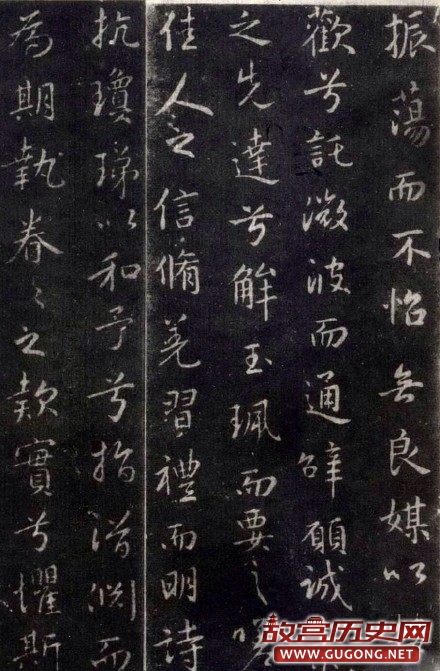 振蕩而不怡無良媒以接
歡兮託微波而通辭願誠素
之先達兮解玉珮而要之嗟
佳人之信脩羌習禮而明詩
抗瓊珶以和予兮指潛淵而
為期執眷〻之款實兮懼斯
故宫历史网
WWW.GUGONG.NET